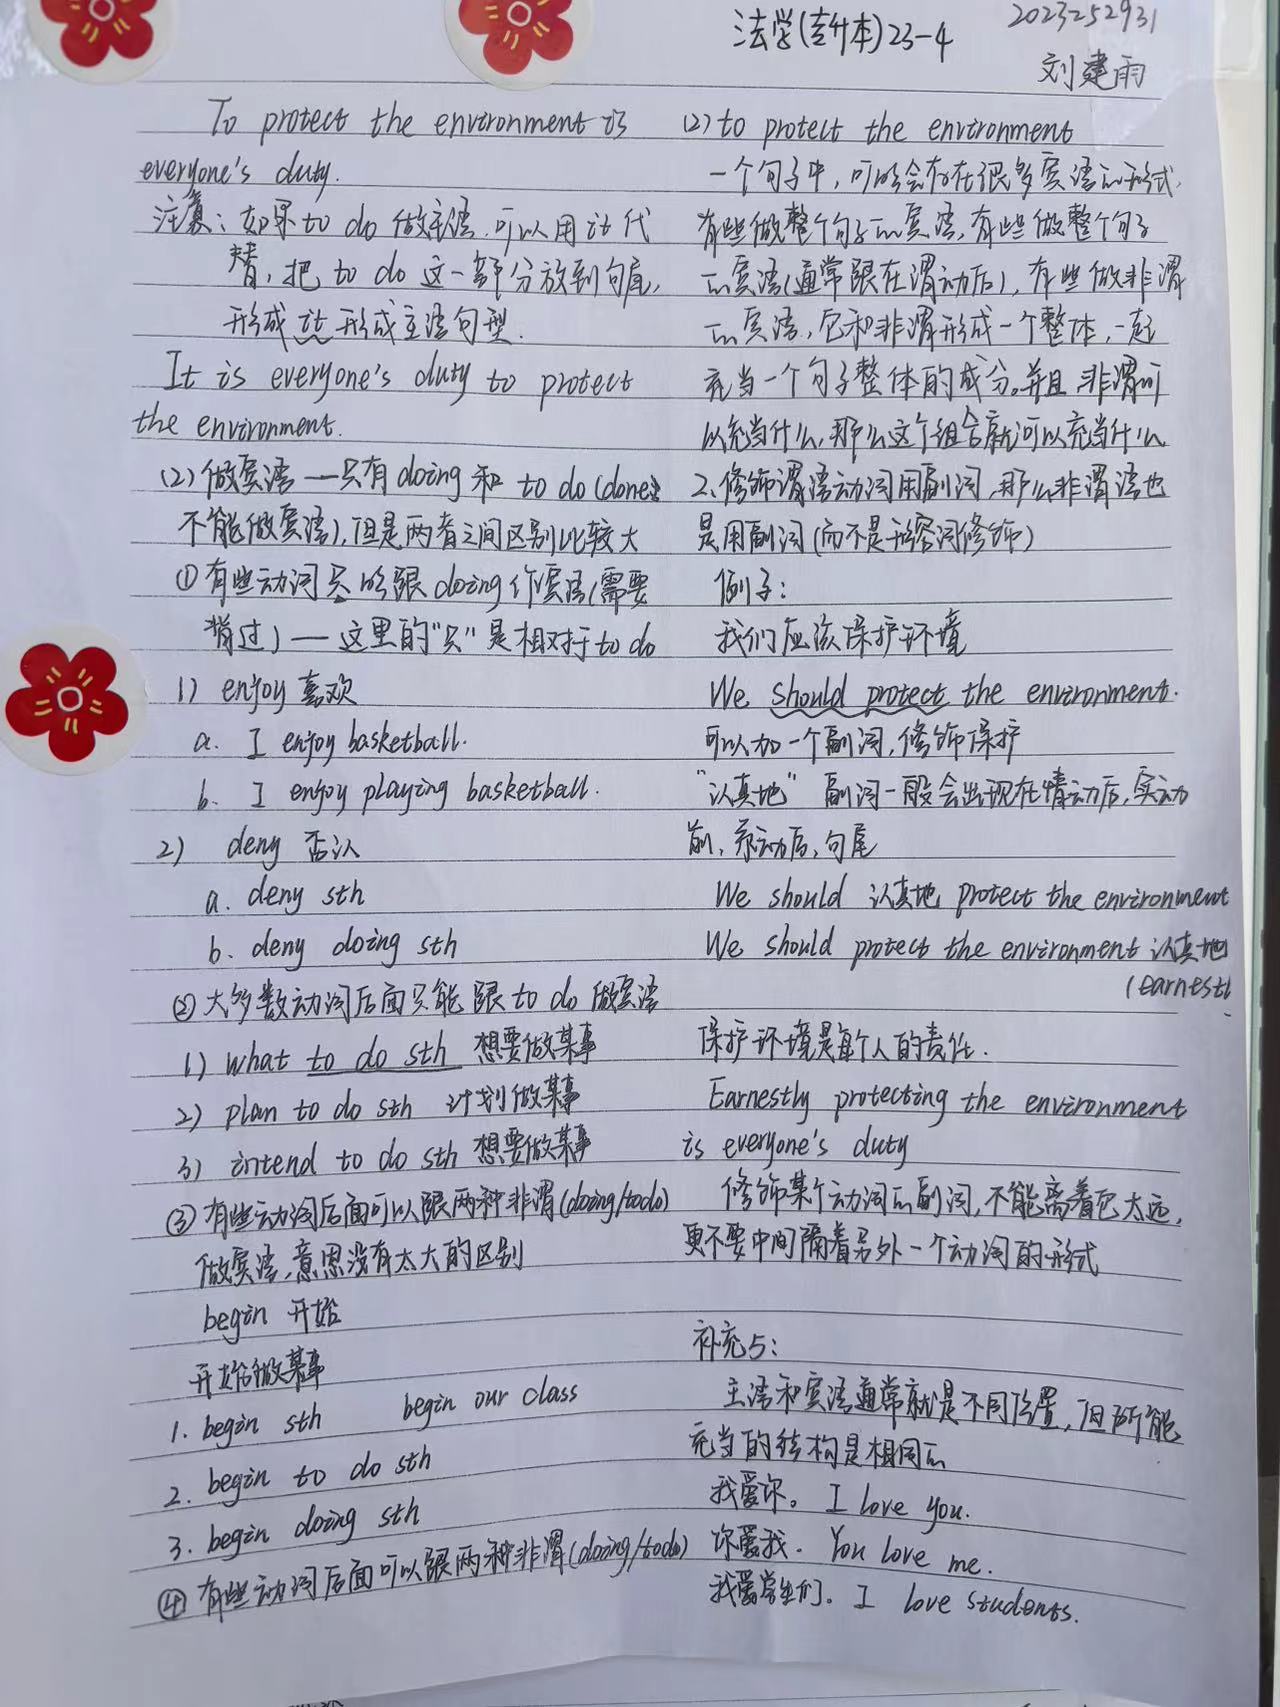 法学(专升本)23-4
2023252931
刘建雨
To protect the environment is
everyone's duty.
注意：如果to do 做主语，可以用it代
替，把 to do 这一部分放到句尾，
形成 it 形成主语句型.
It is everyone's duty to protect
the environment.
(2)做宾语 — 只有doing 和 to do (done
不能做宾语)，但是两者之间区别比较大
①有些动词只能跟doing作宾语(需要
背过) — 这里的"只"是相对于to do
1) enjoy 喜欢
a. I enjoy basketball.
b. I enjoy playing basketball.
2) deny 否认
a. deny sth
b. deny doing sth
②大多数动词后面只能跟 to do 做宾语
1) what to do sth 想要做某事
2) plan to do sth 计划做某事
3) intend to do sth 想要做某事
③有些动词后面可以跟两种非谓(doing/todo)
做宾语，意思没有太大的区别
begin 开始
开始做某事
1. begin sth begin our class
2. begin to do sth
3. begin doing sth
④有些动词后面可以跟两种非谓(doing/todo)
(2) to protect the environment
一个句子中，可能会存在很多宾语的形式，
有些做整个句子的宾语，有些做整个句子
的宾语(通常跟在谓动后)，有些做非谓
的宾语，它和非谓形成一个整体，一起
充当一个句子整体的成分。并且 非谓可
以充当什么，那么这个组合就可以充当什么
2、修饰谓语动词用副词，那么非谓语也
是用副词(而不是形容词修饰)
例子：
我们应该保护环境
We should protect the environment.
可以加一个副词，修饰保护
"认真地" 副词一般会出现在情动后，实动
前，系动后，句尾
We should 认真地 protect the environment
We should protect the environment 认真地
(Earnestl
保护环境是每个人的责任.
Earnestly protecting the environment
is everyone's duty
修饰某个动词的副词，不能离着它太远，
更不要中间隔着另外一个动词的形式
补充5：
主语和宾语通常就是不同位置，但所能
充当的结构是相同的
我爱你。 I love you.
你爱我. You love me.
我爱学生们。 I love students.